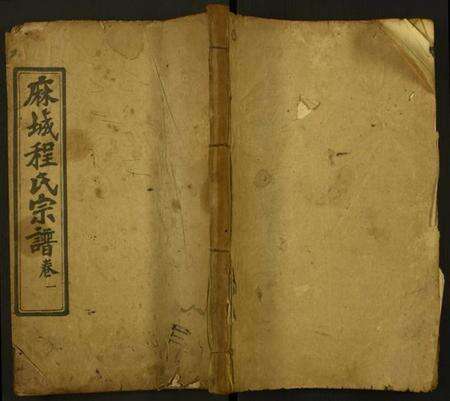 麻城程氏宗譜卷一